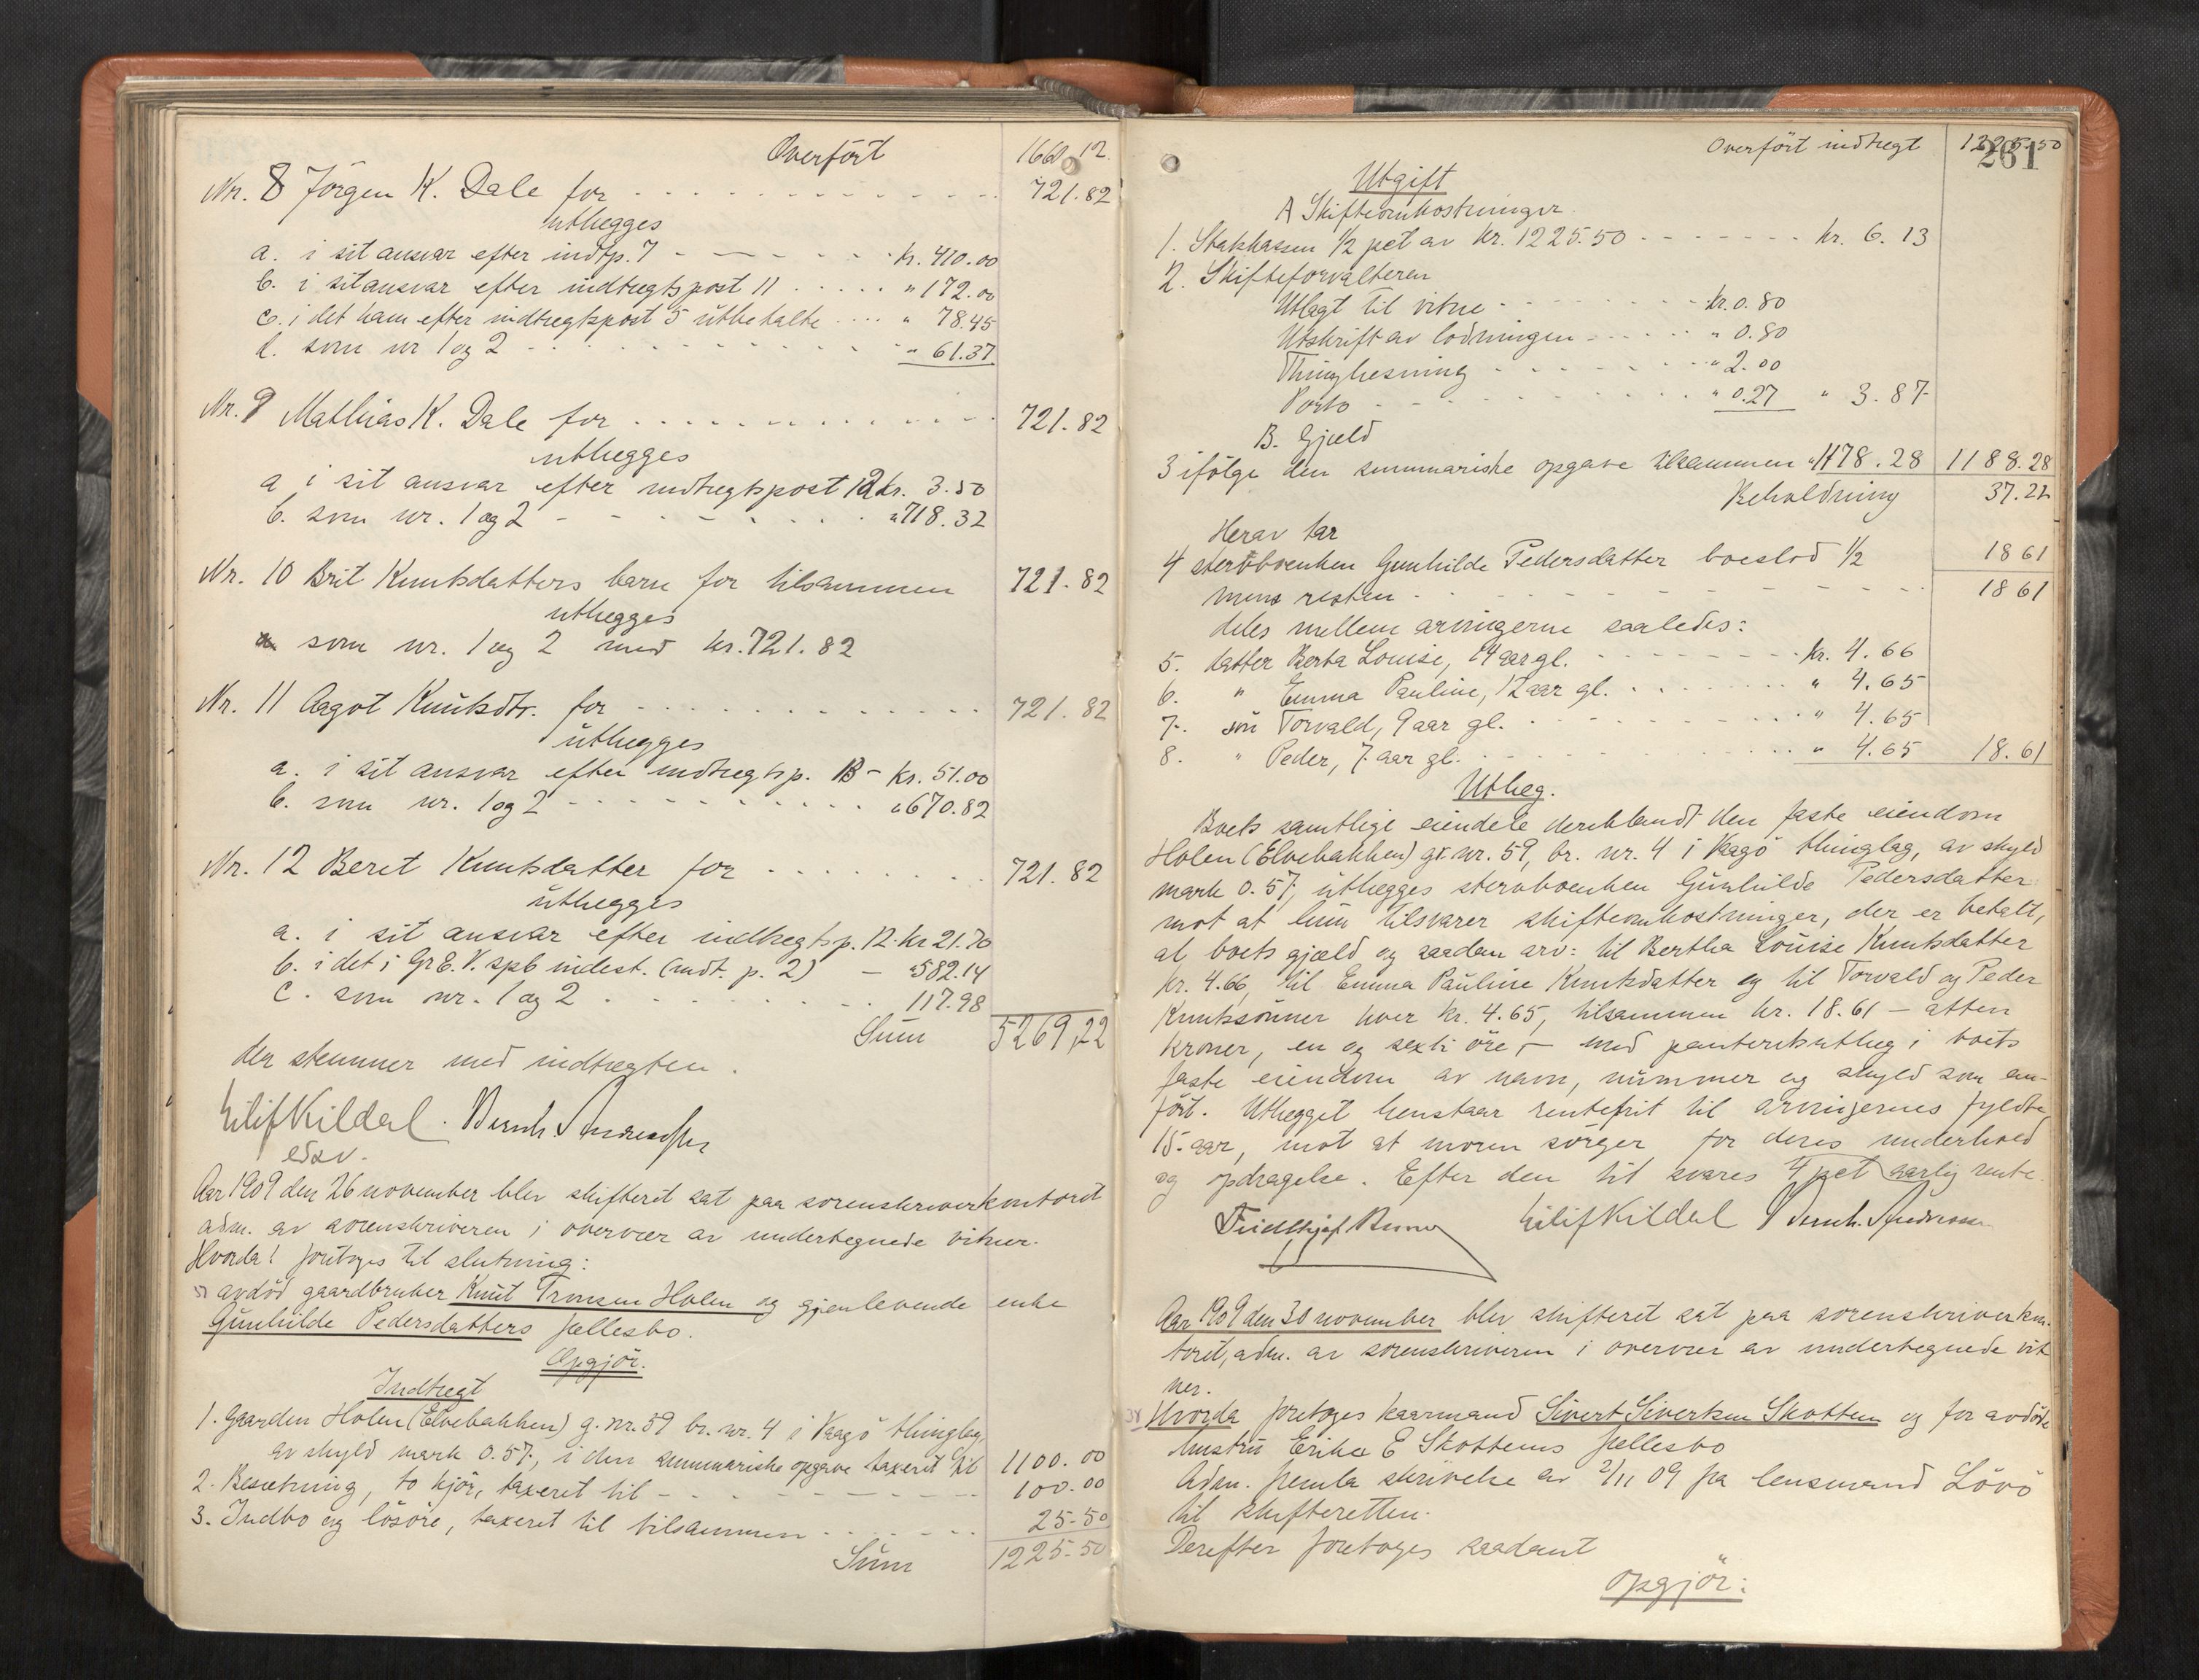 Overført 1660.12.
Nr. 8 Jörgen K. Dale for 721.82
utlægges
a. i sit ansvar efter indtp. 7 kr. 410.00
b. i sit ansvar efter indtægtspost 11 " 172.00
c. i det ham efter indtægtspost 5 utbetalte " 78.45
d. som nr 1 og 2 " 61.37
Nr. 9 Mathias K. Dale for 721.82
utlægges
a i sit ansvar efter indtægtspost 12 kr. 3.50
b. som nr. 1 og 2 " 718.32
Nr. 10 Brit Knutsdatters barn for tilsammen 721.82
utlægges
som nr. 1 og 2 med kr. 721.82
Nr. 11 Aagot Knutsdtr. for 721.82
utlægges
a. i sit ansvar efter indtægtsp. 13 - kr. 51.00
b. som nr. 1 og 2 " 670.82
Nr. 12 Beret Knutsdatter for 721.82
utlægges
a. i sit ansvar efter indtægtsp. 12. kr 21.70
b. i det i Gr E. V. spb indest. (indt. p. 2) - " 582.14
c. som nr. 1 og 2 117.98
Sum 5269,22
der stemmer med indtægten.
Eilif Kildal. Bernh. Andreassen
edsv.
Aar 1909 den 26 november blev skifteret sat paa sorenskriverkontoret
adm. av sorenskriveren i overvær av undertegnede vitner.
Hvorda! foretoges til slutning:
avdöd gaardbruker Knut Tronsen Holen og gjenlevende enke
Gunhilde Pedersdatters fællesbo.
Opgjör.
Indtægt
1. Gaarden Holen (Elvebakken) g. nr. 59 br. nr. 4 i Vaagö thinglag,
av skyld mark 0.57, i den summariske opgave taxeret til 1100.00
2. Besætning, to kjör, taxeret til 100.00
3. Indbo og lösöre, taxeret til tilsammen 25.50
Sum 1225.50
Overfört indtægt 1225.50
261
Utgift
A Skifteomkostninger.
1. Statskassen 1/2 pct av kr. 1225.50 kr. 6.13
2. Skifteforvalteren
Utlagt til vitne kr. 0.80
Utskrift av lodningen " 0.80
Thinglæsning " 2.00
Porto " 0.27 " 3.87
B. Gjæld
3 ifölge den summariske opgave tilsammen " 1178.28 1188.28
Beholdning 37.22
Herav tar
4 stervboenken Gunhilde Pedersdatter boeslod 1/2 18 61
mens resten 18 61
deles mellem arvingerne saaledes:
5. datter Berta Louise, 14 aar gl. kr. 4.66
6. " Emma Pauline, 12 aar gl. " 4.65
7. sön Torvald, 9 aar gl. " 4.65
8. " Peder, 7 aar gl. " 4.65 18.61
Utlæg.
Boets samtlige eiendele deriblandt den faste eiendom
Holen (Elvebakken) gr. nr. 59, br. nr. 4 i Vaagö thinglag, av skyld
mark 0.57, utlægges stervboenken Gunhilde Pedersdatter
mot at hun tilsvarer skifteomkostninger, der er betalt,
al boets gjæld og saadan arv: til Bertha Louise Knutsdatter
kr. 4.66, til Emma Pauline Knutsdatter og til Torvald og Peder
Knutssönner hver kr. 4.65, tilsammen kr. 18.61 – atten
kroner, en og sexti öre, – med panteretsutlæg i boets
faste eiendom av navn, nummer og skyld som an-
fört. Utlægget henstaar rentefrit til arvingernes fyldte
15. aar, mot at moren sörger for deres underhold
og opdragelse. Efter den tid svares 4 pct aarlig rente.
Eilif Kildal Bernh. Andreassen
Aar 1909 den 30 november blev skifteret sat paa sorenskriverkon-
toret, adm. av sorenskriveren i overvær av undertegnede vit
ner.
Hvorda foretoges kaarmand Sivert Sivertsen Skotten og for avdöde
hustru Erika E Skottens fællesbo
Adm. fremla skrivelse av 2/11 09 fra lensmand Lövö
til skifteretten.
Derefter foretoges saadant
opgjör: